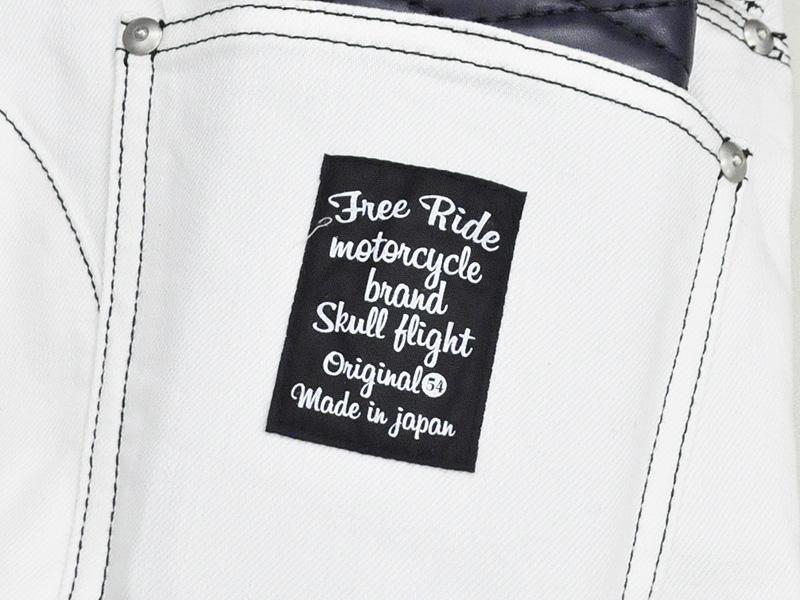 Free Ride
motorcycle
brand
Skull flight
Original 54
Made in japan